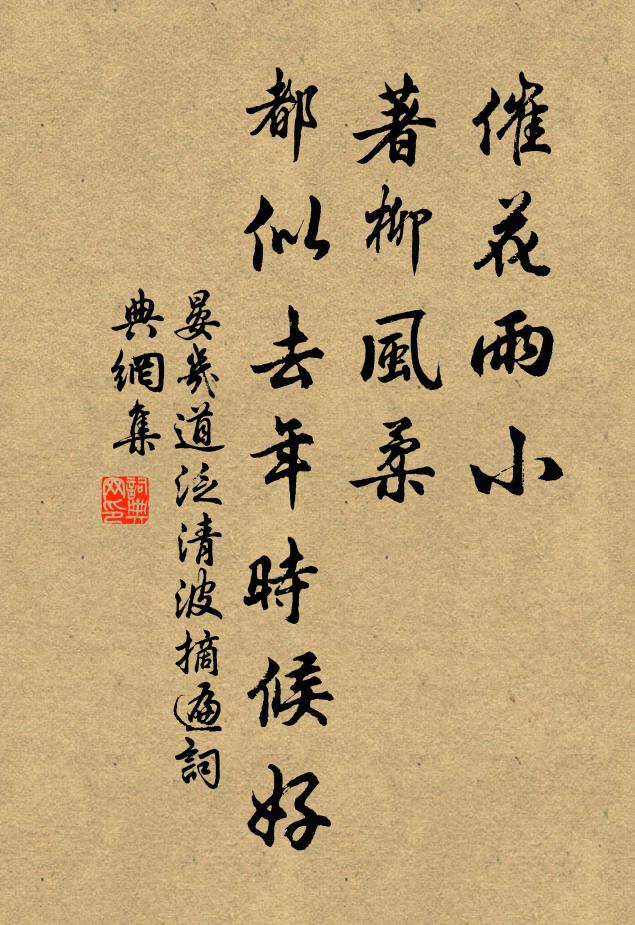 催花雨小
著柳風柔
都似去年時候好
晏幾道泛清波摘遍詞
典網集
詞典网印